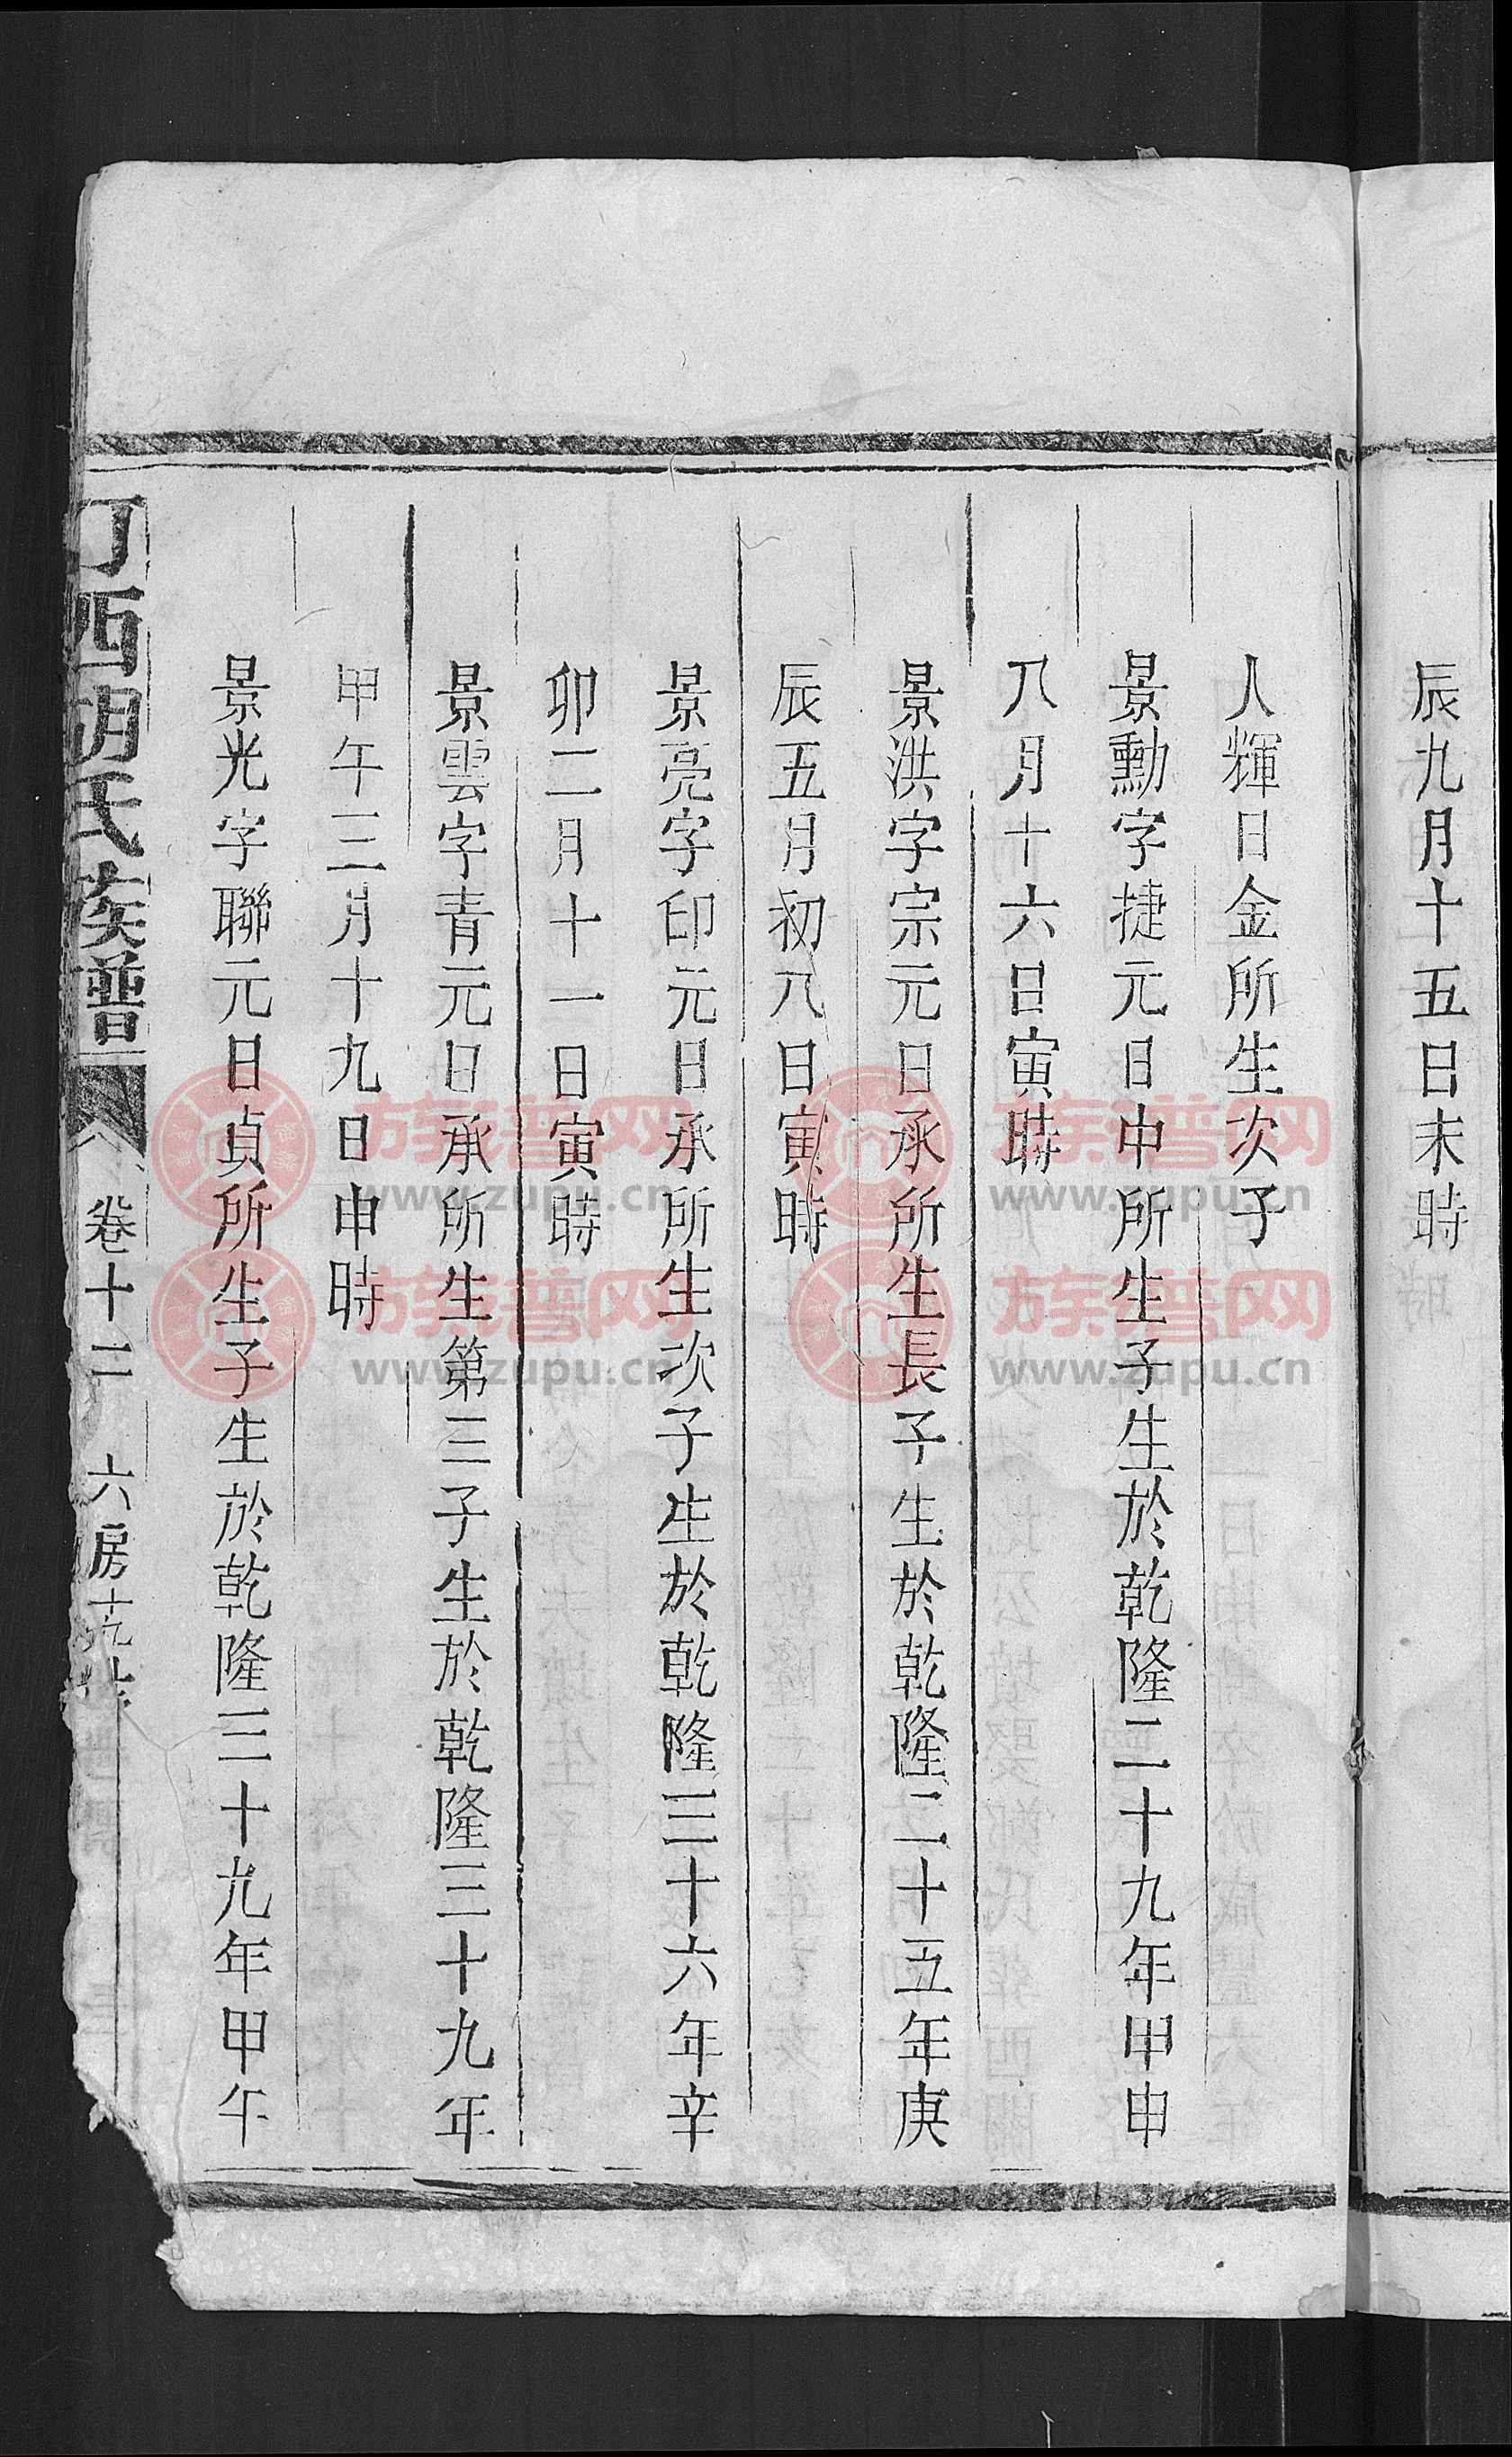 辰九月十五日未時
人輝日金所生次子
景勳字捷元日中所生子生於乾隆二十九年甲申
八月十六日寅時
景洪字宗元日承所生長子生於乾隆二十五年庚
辰五月初八日寅時
景亮字印元日承所生次子生於乾隆三十六年辛
卯二月十一日寅時
景雲字青元日承所生第三子生於乾隆三十九年
甲午三月十九日申時
景光字聯元日貞所生子生於乾隆三十九年甲午
西胡氏族譜 卷十二 六房
族譜网
www.zupu.cn
族譜网
www.zupu.cn
族譜网
www.zupu.cn
族譜网
www.zupu.cn